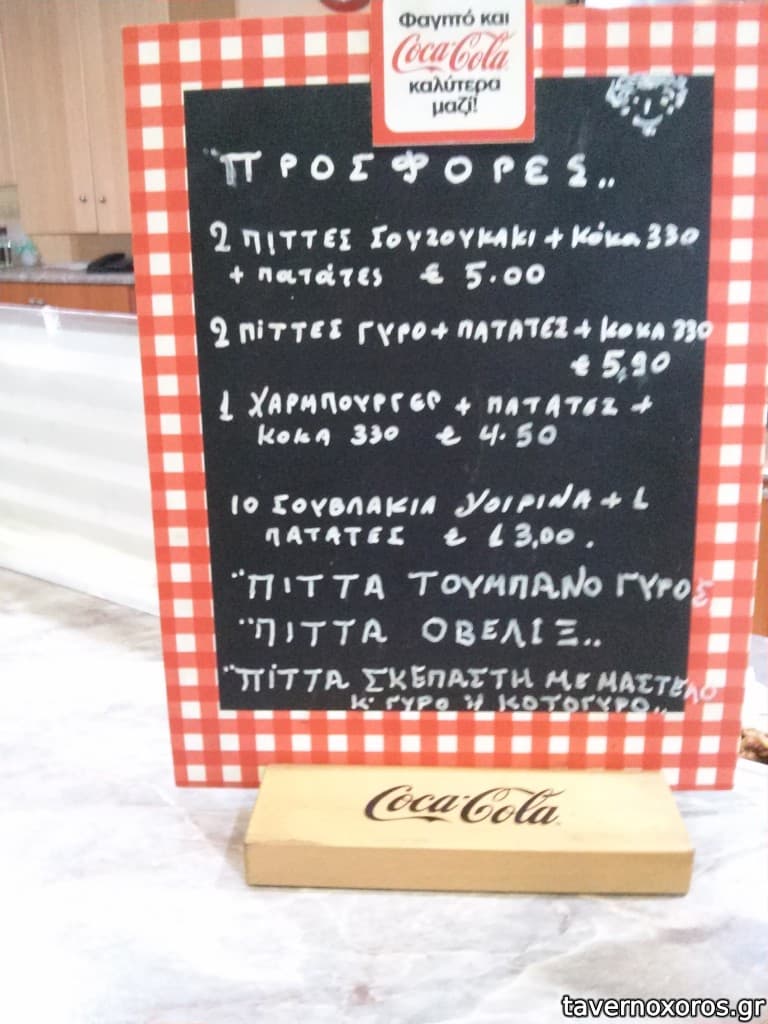 Φαγητό και
Coca-Cola
καλύτερα
μαζί!
"ΠΡΟΣΦΟΡΕΣ..
2 ΠΙΤΤΕΣ ΣΟΥΖΟΥΚΑΚΙ + Κόκα 330
+ πατάτες € 5.00
2 ΠΙΤΤΕΣ ΓΥΡΟ + ΠΑΤΑΤΕΣ + ΚΟΚΑ 330
€ 5,90
1 ΧΑΡΜΠΟΥΡΓΕΡ + ΠΑΤΑΤΕΣ +
ΚΟΚΑ 330 € 4.50
10 ΣΟΥΒΛΑΚΙΑ ΧΟΙΡΙΝΑ + 1
ΠΑΤΑΤΕΣ € 13,00.
"ΠΙΤΤΑ ΤΟΥΜΠΑΝΟ ΓΥΡΟΣ
"ΠΙΤΤΑ ΟΒΕΛΙΞ..
"ΠΙΤΤΑ ΣΚΕΠΑΣΤΗ ΜΕ ΜΑΣΤΕΛΟ
Κ' ΓΥΡΟ Ή ΚΟΤΟΓΥΡΟ..
Coca-Cola
tavernoxoros.gr